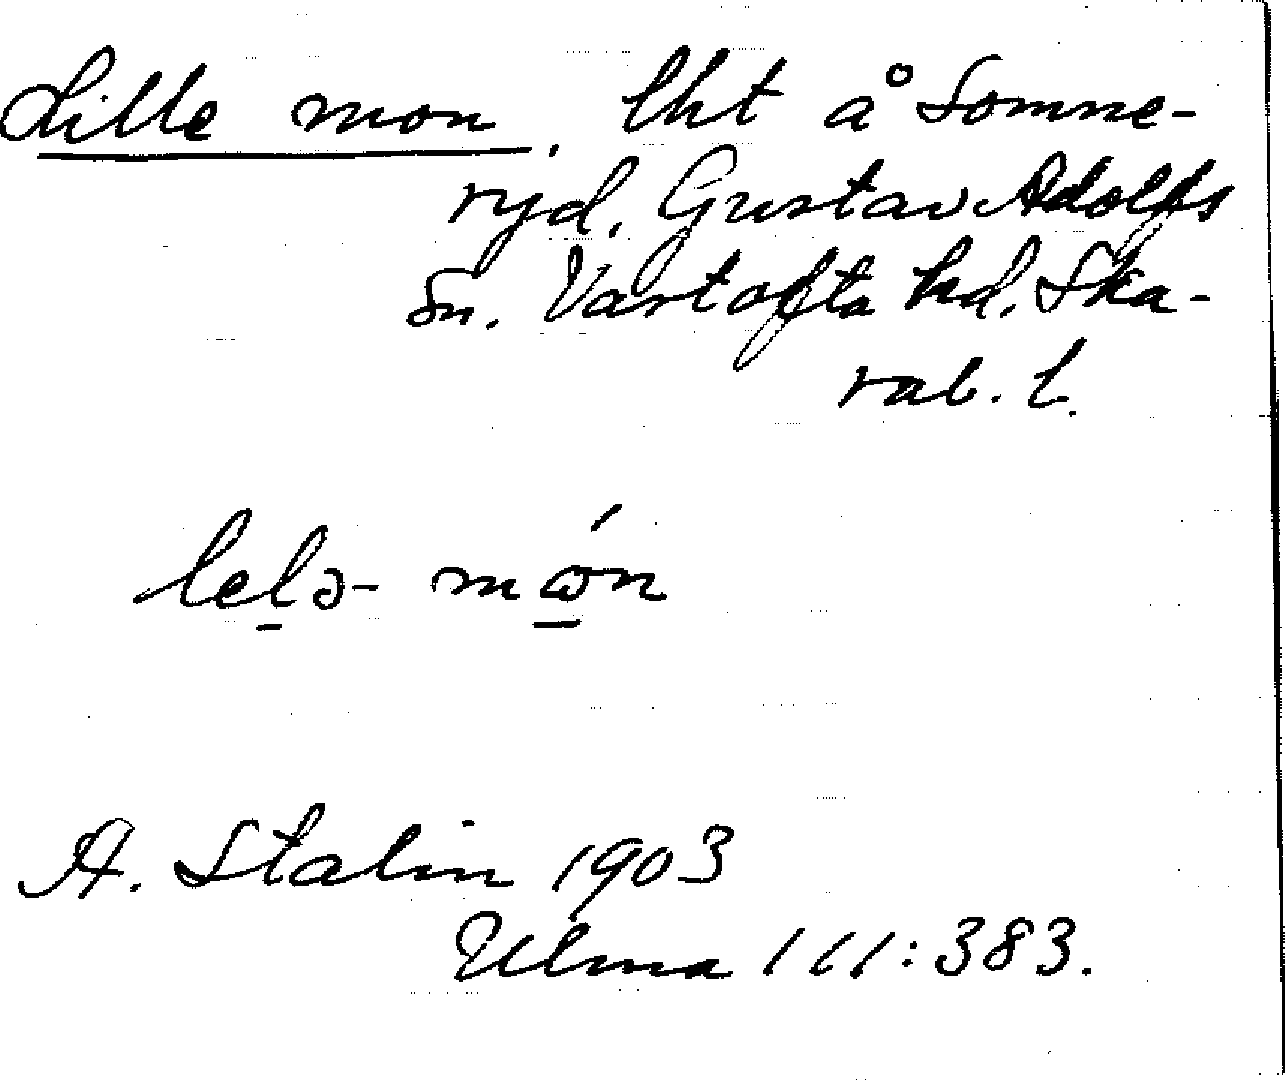 Lille mon, lht å Somme-
ryd, Gustav Adolfs
sn. Vartofta hd, Ska-
rab. l.
lelə- món
A. Stalin 1903
Ulma 111:383.